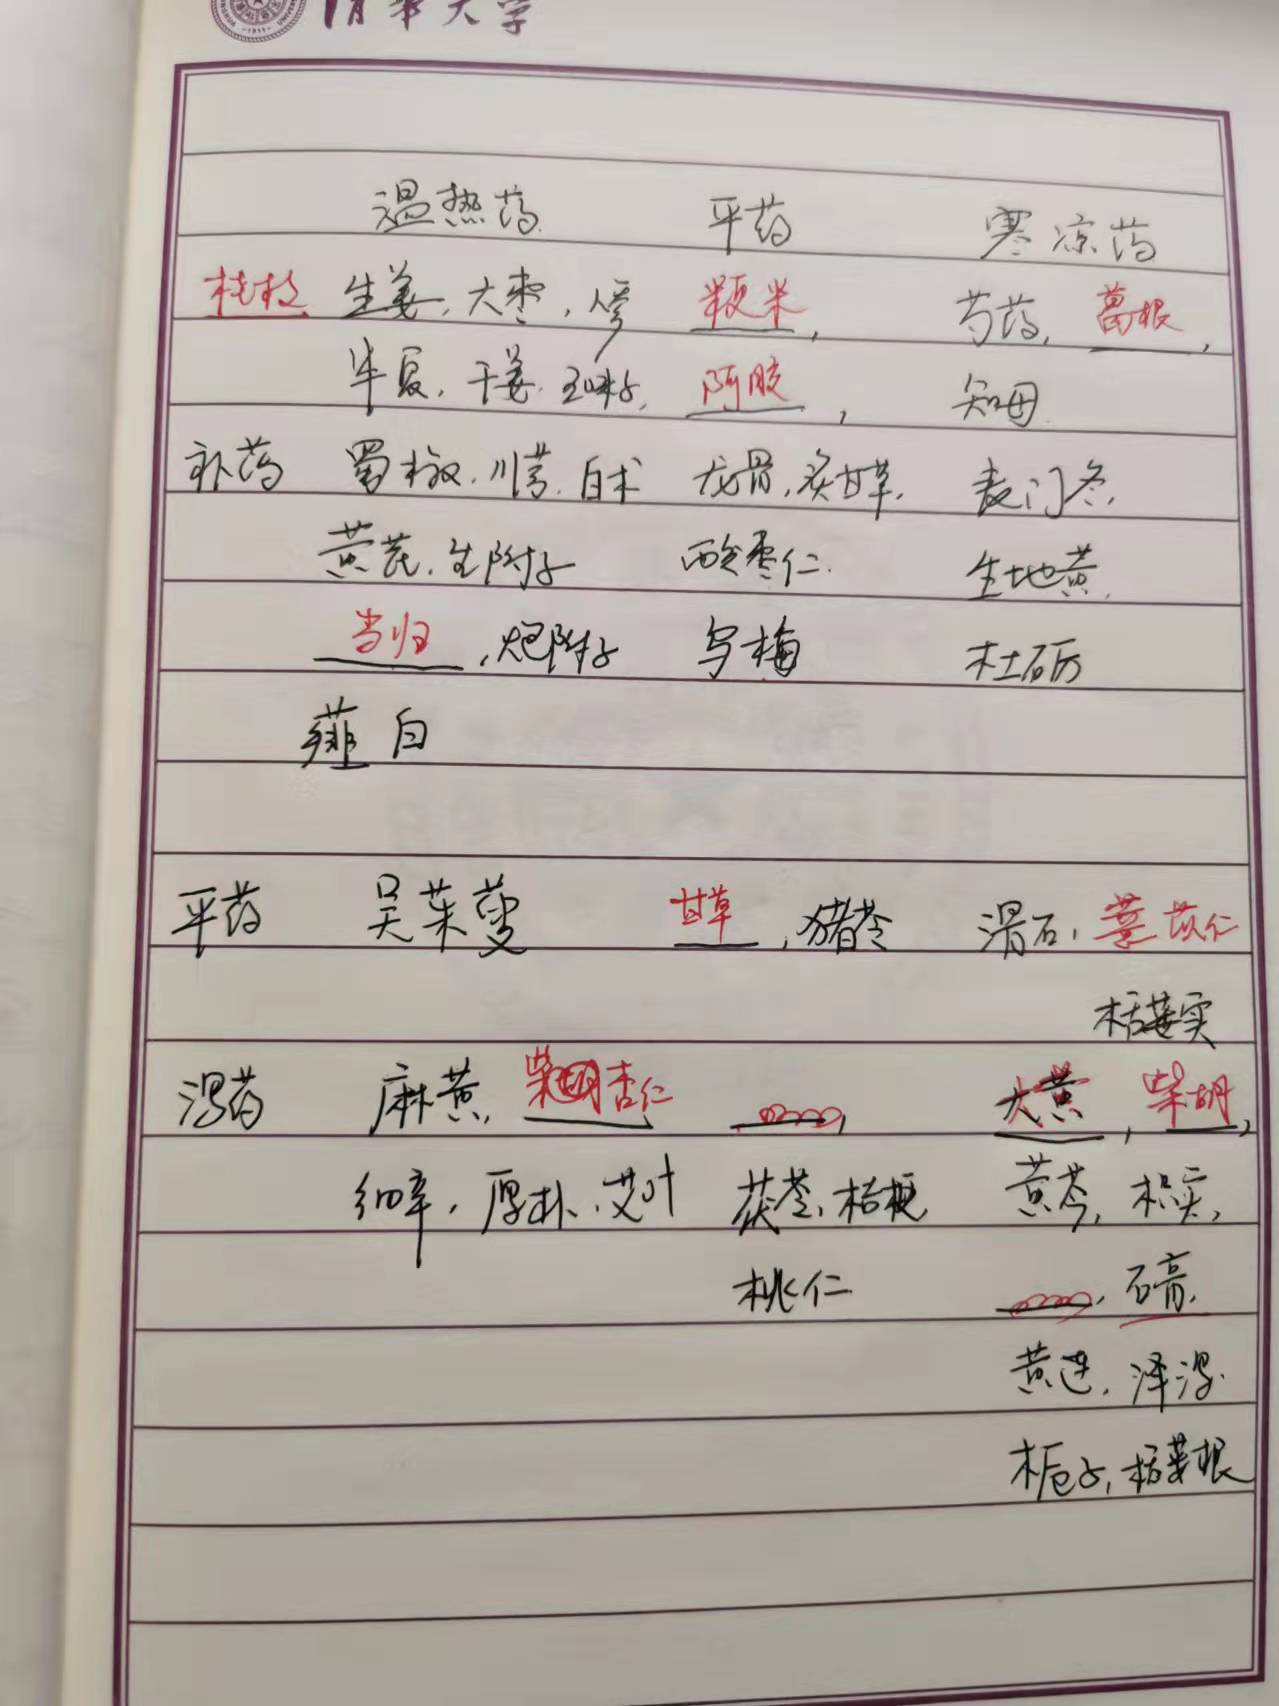 清华大学
温热药 平药 寒凉药
桂枝 生姜,大枣,人参 粳米, 芍药,葛根,
半夏,干姜.五味子, 阿胶, 知母
补药 蜀椒.川芎.白术 龙骨,炙甘草, 麦门冬,
黄芪.生附子 酸枣仁. 生地黄
当归,炮附子 乌梅 牡砺
薤白
平药 吴茱萸 甘草,猪苓 滑石,薏苡仁
栝蒌实
泻药 麻黄,柴胡杏仁 大黄,柴胡,
细辛,厚朴.艾叶 茯苓,桔梗 黄芩,枳实,
桃仁 石膏,
黄连,泽泻.
栀子,栝蒌根